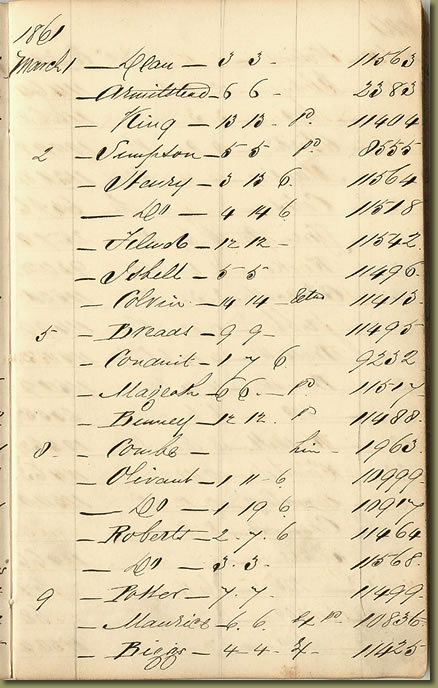 1861
March 1 — Dean — 3 3 - 11563
— Armitstead — 6 6 - 2383
— King — 13 13 - po. 11404
2 — Simpson — 5 5 po. 8555
— Henry — 3 13 6. 11564
— Do — 4 14 6 11518
— 12 12 - 11542
— Isbell — 5 5 11496
— Colvin — 14 14 - 11413
5 — Breads — 9 9 - 11495
— Conduit — 1 7 6 9232
— 6 6. — po. 11517
— Binney — 12 12. p 11488
8 - — Combe — 1963
— Olivant — 1 11 - 6 10999
— Do — 1 19 6 10917
— Roberts — 2. 7. 6 11464
— Do — 3. 3. 11568
9 — Potter — 7. 7. 11499
— Maurice — 6. 6. po. 10836
— Biggs — 4 - 4 - 11425